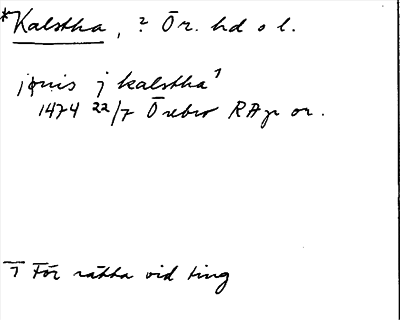 *Kalstha, ? Ör. hd o l.
jönis j kalstha 1
1474 22/7 Örebro RAp or.
1 För rätta vid ting